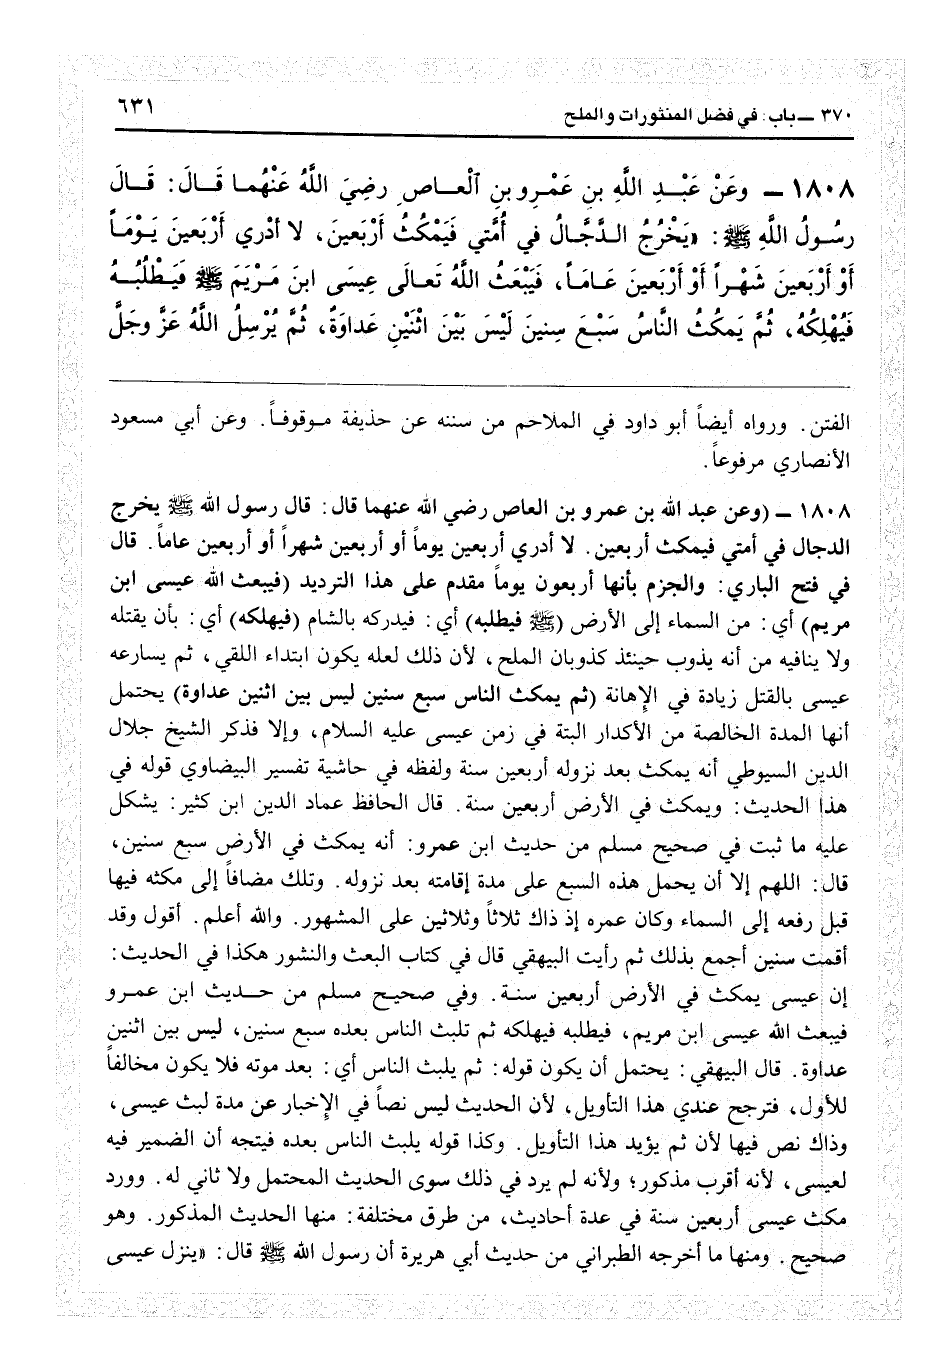 ٣٧٠ ــ باب: في فضل المنثورات والملح
٦٣١
١٨٠٨ ــ وعَنْ عَبْـدِ اللَّهِ بنِ عَمْـرِو بنِ الْعـاصِ رضِيَ اللَّهُ عَنْهُمـا قَـالَ: قَـالَ
رسُـولُ اللَّهِ ﷺ: «يَخْرُجُ الـدَّجَّـالُ في أُمَّتي فَيَمْكُثُ أَرْبَعينَ، لا أَدْري أَرْبَعينَ يَـوْمـاً
أَوْ أَرْبَعينَ شَهْـراً أَوْ أَرْبَعينَ عَـامـاً، فَيَبْعَثُ اللَّهُ تَعـالَى عِيسَى ابنَ مَـرْيَمَ ﷺ فَيَـطْلُبُـهُ
فَيُهْلِكُهُ، ثُمَّ يَمكُثُ النَّاسُ سَبْـعَ سِنينَ لَيْسَ بَيْنَ اثْنَيْنِ عَداوَةٌ، ثُمَّ يُرْسِلُ اللَّهُ عَزَّ وجَلَّ
الفتن. ورواه أيضاً أبو داود في الملاحم من سننه عن حذيفة مـوقوفـاً. وعن أبي مسعود
الأنصاري مرفوعاً.
١٨٠٨ ــ (وعن عبد الله بن عمرو بن العاص رضي الله عنهما قال: قال رسول الله ﷺ يخرج
الدجال في أمتي فيمكث أربعين. لا أدري أربعين يوماً أو أربعين شهراً أو أربعين عاماً. قال
في فتح الباري: والجزم بأنها أربعون يوماً مقدم على هذا الترديد (فيبعث الله عيسى ابن
مريم) أي: من السماء إلى الأرض (ﷺ فيطلبه) أي: فيدركه بالشام (فيهلكه) أي: بأن يقتله
ولا ينافيه من أنه يذوب حينئذ كذوبان الملح، لأن ذلك لعله يكون ابتداء اللقي، ثم يسارعه
عيسى بالقتل زيادة في الإهانة (ثم يمكث الناس سبع سنين ليس بين اثنين عداوة) يحتمل
أنها المدة الخالصة من الأكدار البتة في زمن عيسى عليه السلام، وإلا فذكر الشيخ جلال
الدين السيوطي أنه يمكث بعد نزوله أربعين سنة ولفظه في حاشية تفسير البيضاوي قوله في
هذا الحديث: ويمكث في الأرض أربعين سنة. قال الحافظ عماد الدين ابن كثير: يشكل
عليه ما ثبت في صحيح مسلم من حديث ابن عمرو: أنه يمكث في الأرض سبع سنين،
قال: اللهم إلا أن يحمل هذه السبع على مدة إقامته بعد نزوله. وتلك مضافاً إلى مكثه فيها
قبل رفعه إلى السماء وكان عمره إذ ذاك ثلاثاً وثلاثين على المشهور. والله أعلم. أقول وقد
أقمت سنين أجمع بذلك ثم رأيت البيهقي قال في كتاب البعث والنشور هكذا في الحديث:
إن عيسى يمكث في الأرض أربعين سنـة. وفي صحيـح مسلم من حـديث ابن عمـرو
فيبعث الله عيسى ابن مريم، فيطلبه فيهلكه ثم تلبث الناس بعده سبع سنين، ليس بين اثنين
عداوة. قال البيهقي: يحتمل أن يكون قوله: ثم يلبث الناس أي: بعد موته فلا يكون مخالفاً
للأول، فترجح عندي هذا التأويل، لأن الحديث ليس نصاً في الإخبار عن مدة لبث عيسى،
وذاك نص فيها لأن ثم يؤيد هذا التأويل. وكذا قوله يلبث الناس بعده فيتجه أن الضمير فيه
لعيسى، لأنه أقرب مذكور؛ ولأنه لم يرد في ذلك سوى الحديث المحتمل ولا ثاني له. وورد
مكث عيسى أربعين سنة في عدة أحاديث، من طرق مختلفة: منها الحديث المذكور. وهو
صحيح. ومنها ما أخرجه الطبراني من حديث أبي هريرة أن رسول الله ﷺ قال: «ينزل عيسى